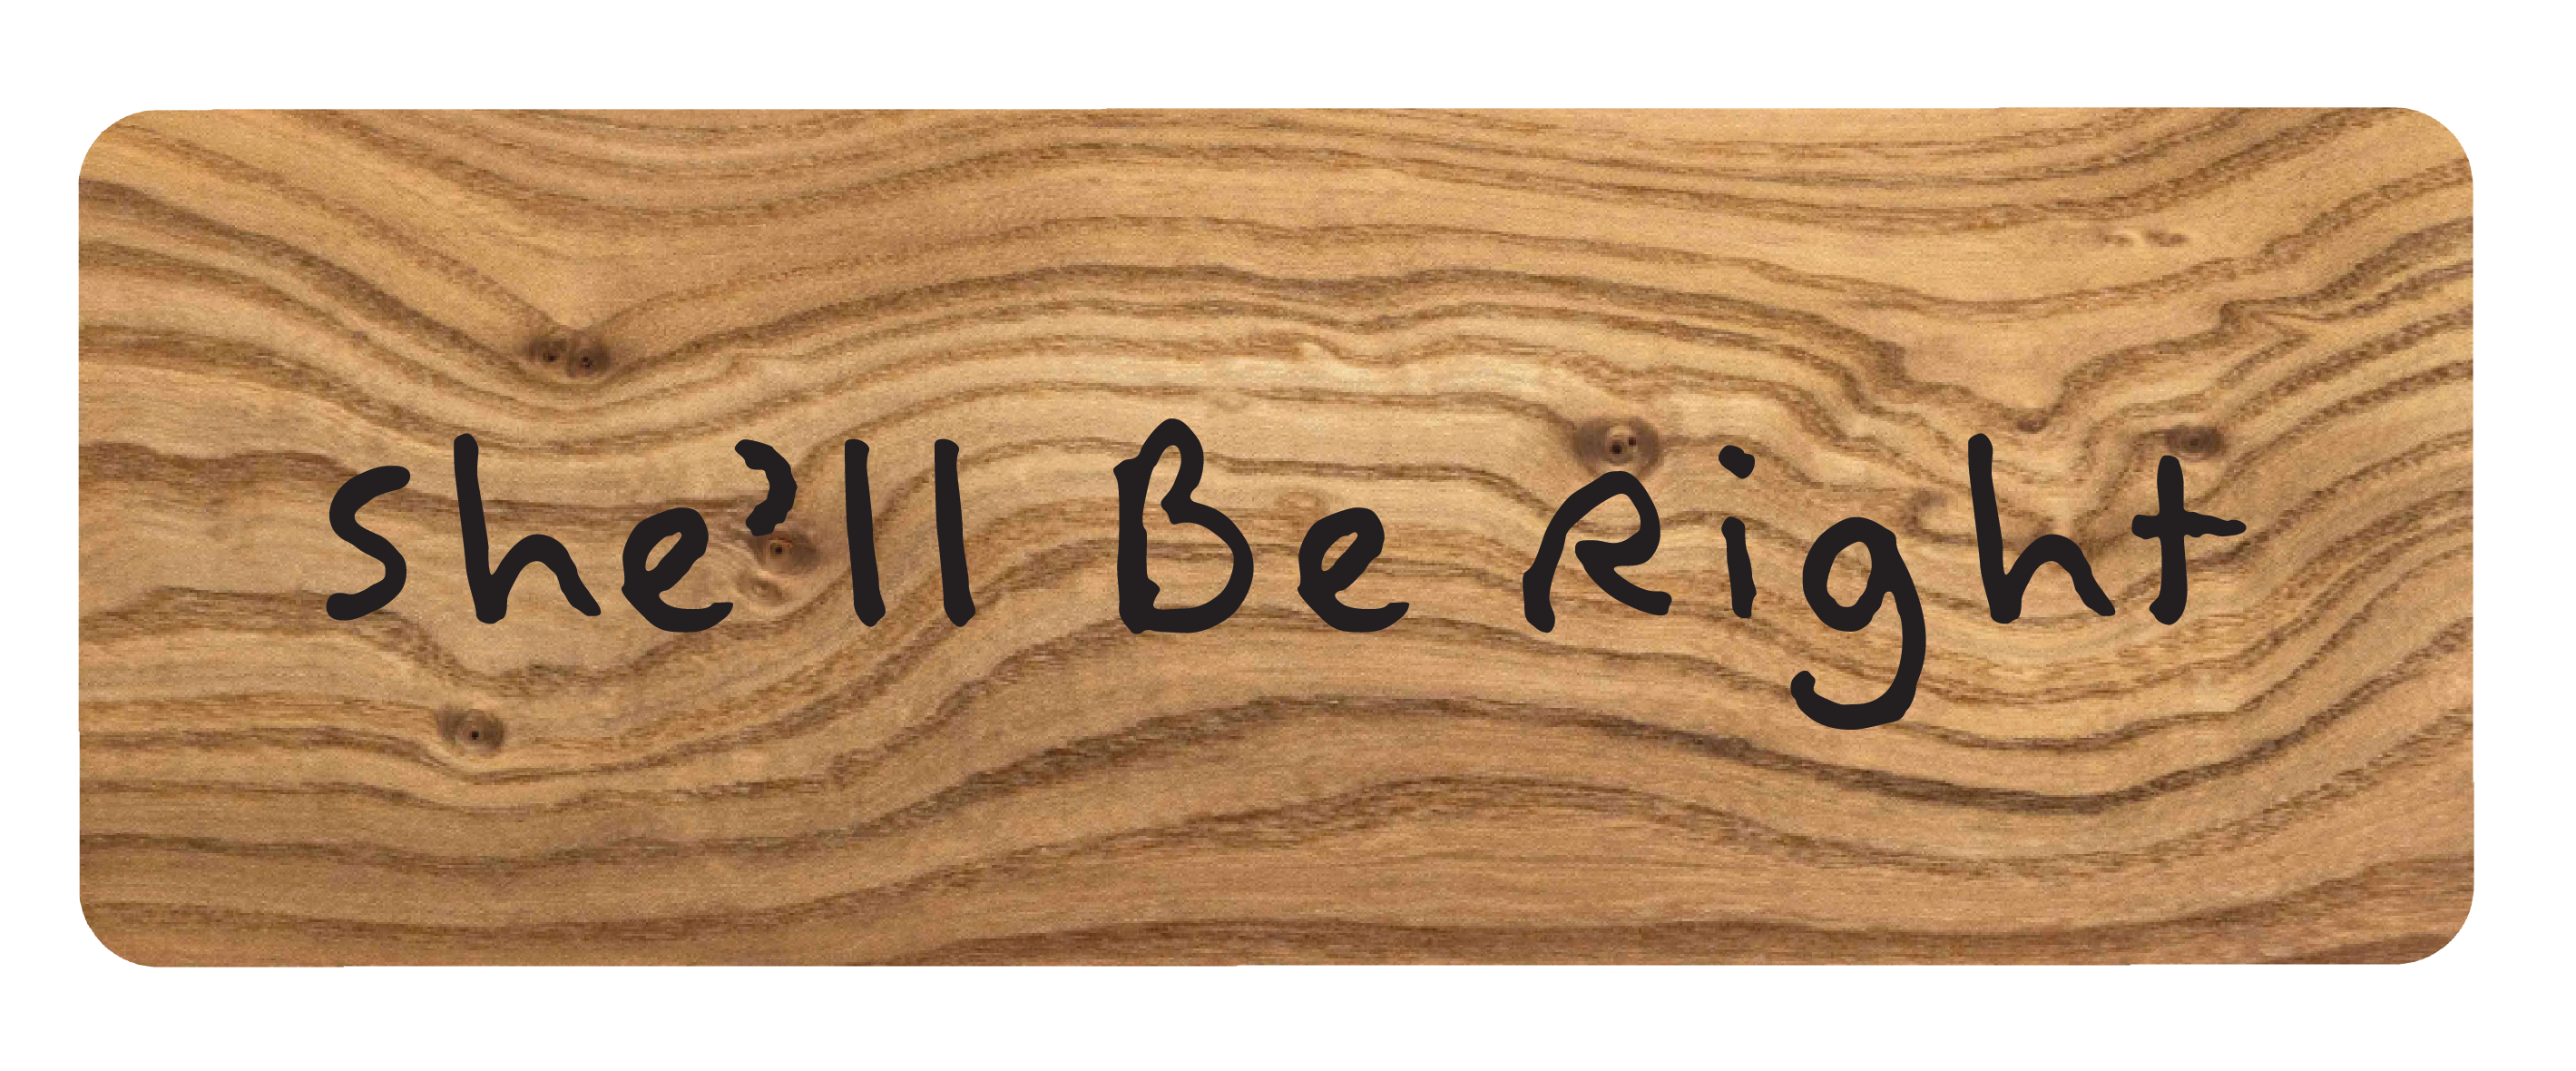 She'll Be Right